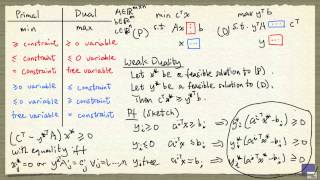 Primal Dual
min max
≥ constraint ≥ 0 variable
≤ constraint ≤ 0 variable
= constraint free variable
≥ 0 variable ≤ constraint
≤ 0 variable ≥ constraint
free variable = constraint
A∈ℝ^{m×n}
b∈ℝ^m
c∈ℝ^n
(P) min c^T x
s.t. Ax b
x
(D) max y^T b
s.t. y^T A c^T
y
Weak Duality
Let x* be a feasible solution to (P).
Let y* be a feasible solution to (D).
Then c^T x* ≥ y*^T b
Pf (Sketch)
y_i ≥ 0 a^{(i)T} x ≥ b_i
y_i ≤ 0 a^{(i)T} x ≤ b_i
y_i free a^{(i)T} x = b_i
⇒ y_i*(a^{(i)T} x* - b_i) ≥ 0
⇒ y_i*(a^{(i)T} x* - b_i) ≥ 0
⇒ y_i*(a^{(i)T} x* - b_i) = 0
(c^T - y*^T A) x* ≥ 0
with equality iff
x_j* = 0 or y*^T A_j = c_j ∀ j=1,...,n